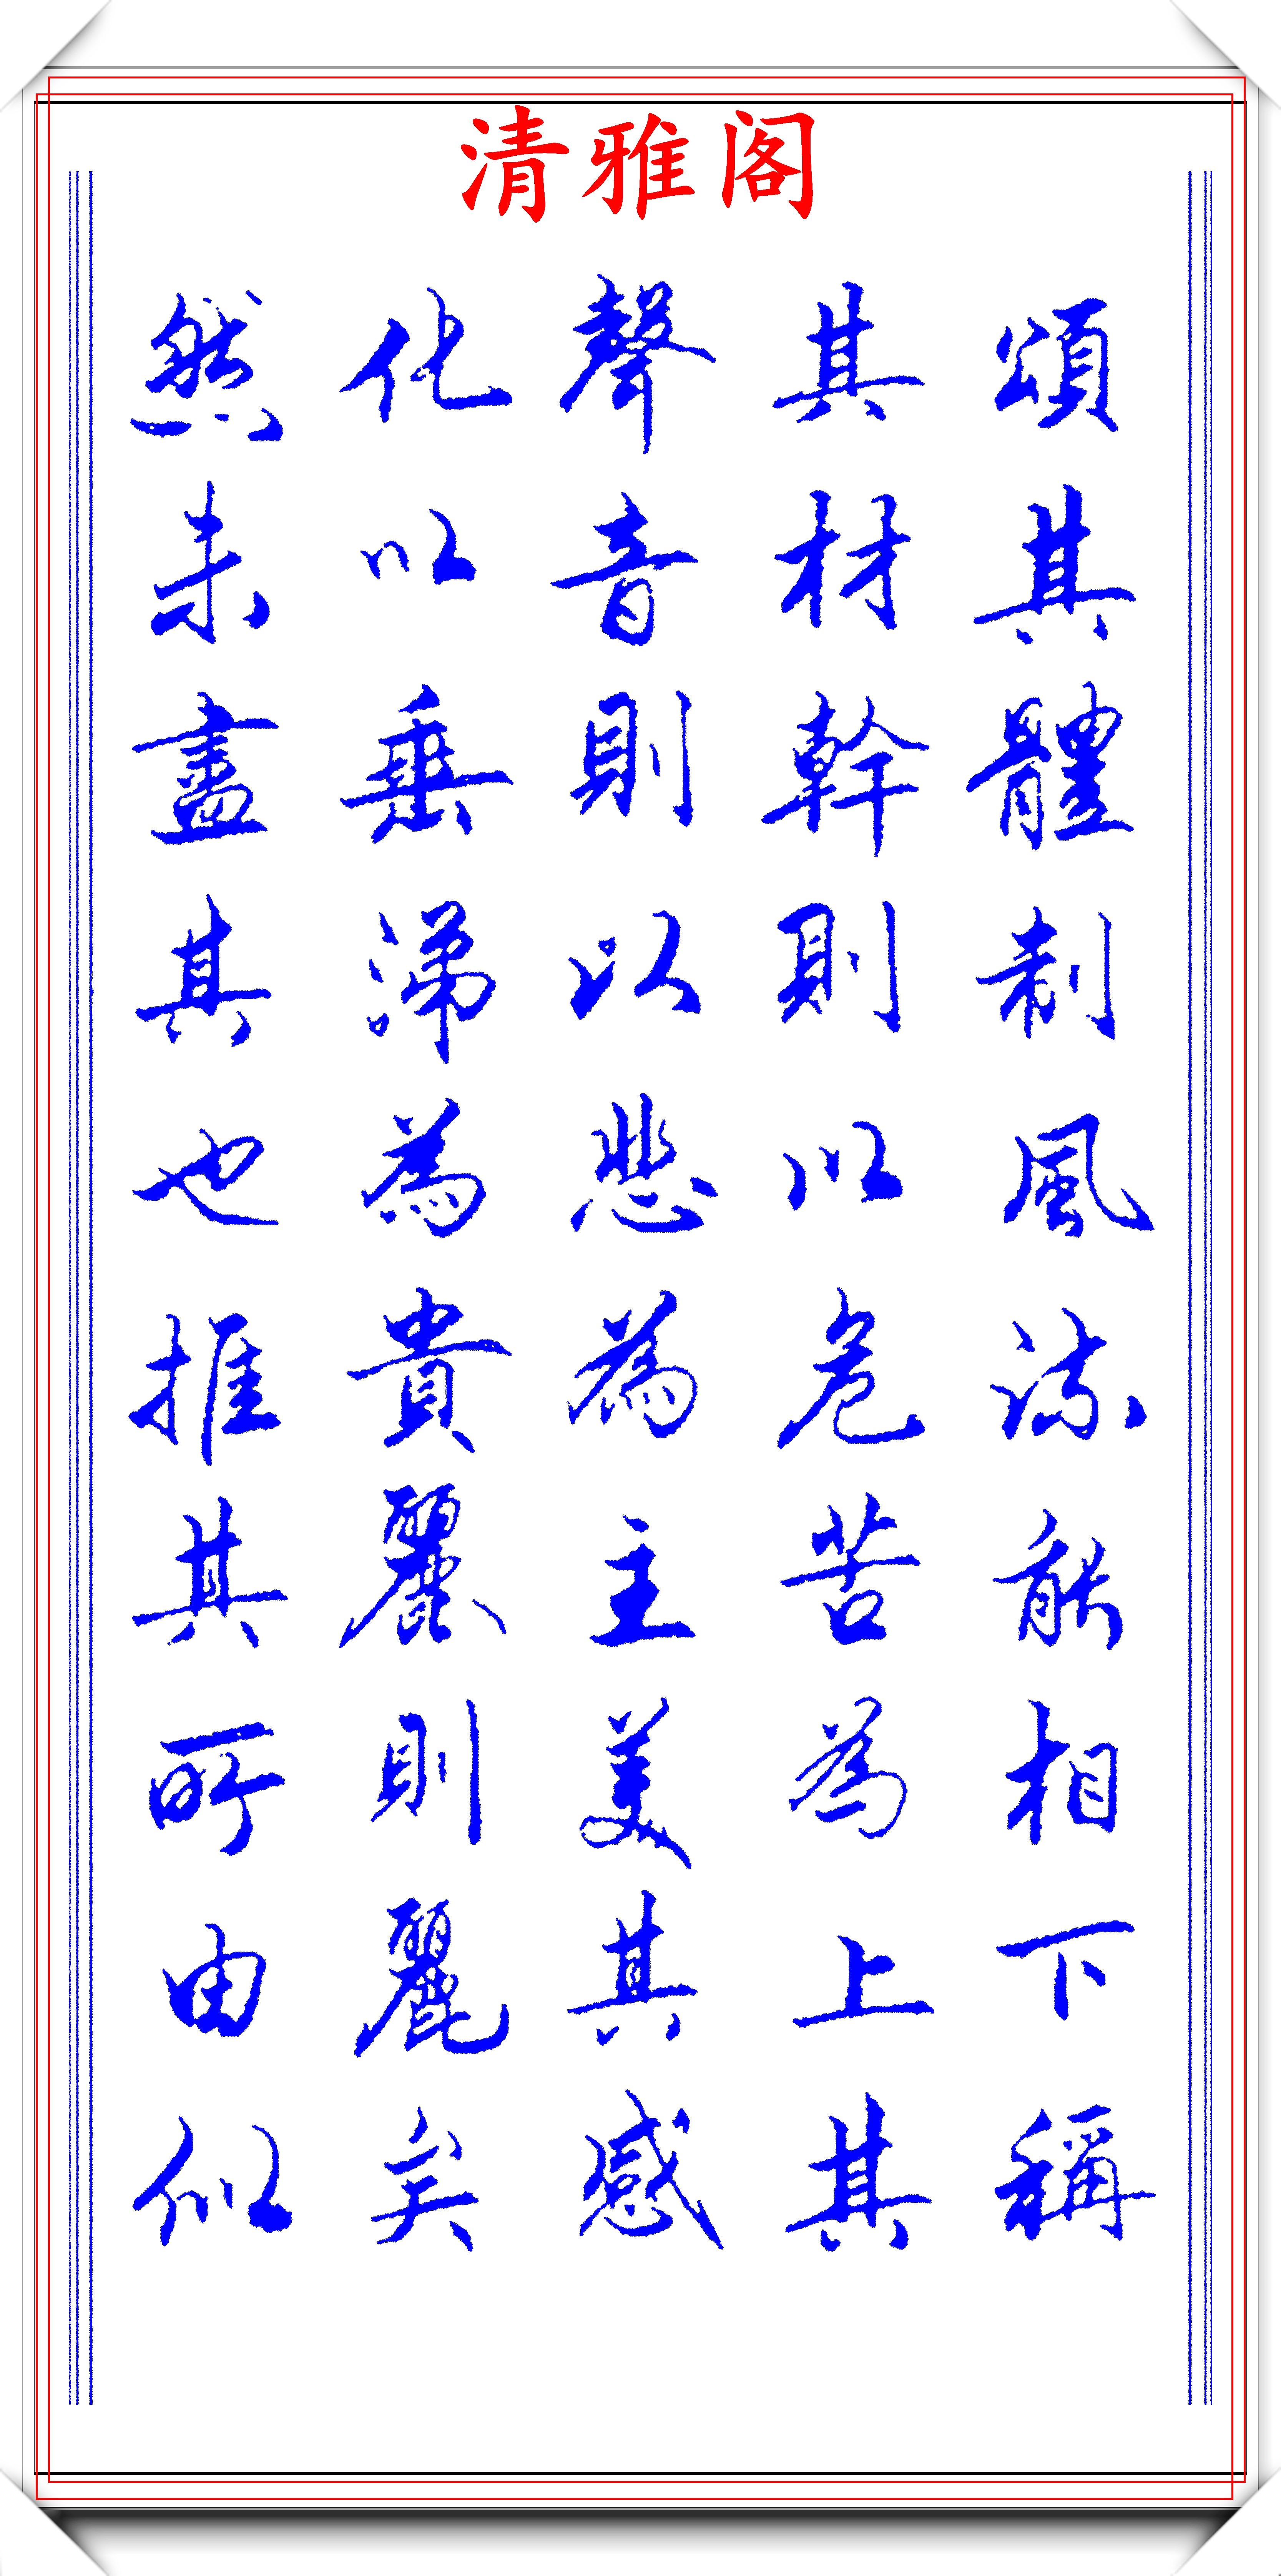 清雅阁
頌其體制風流能相下稱
其材幹則以危苦為上其
聲音則以悲為主美其感
化以垂涕為貴麗則麗矣
然未盡其也推其所由似